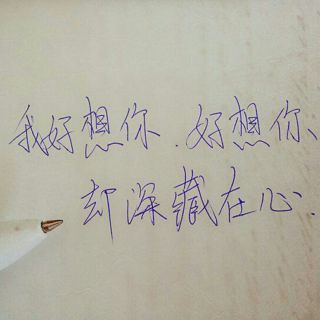 我好想你.好想你、
却深藏在心.